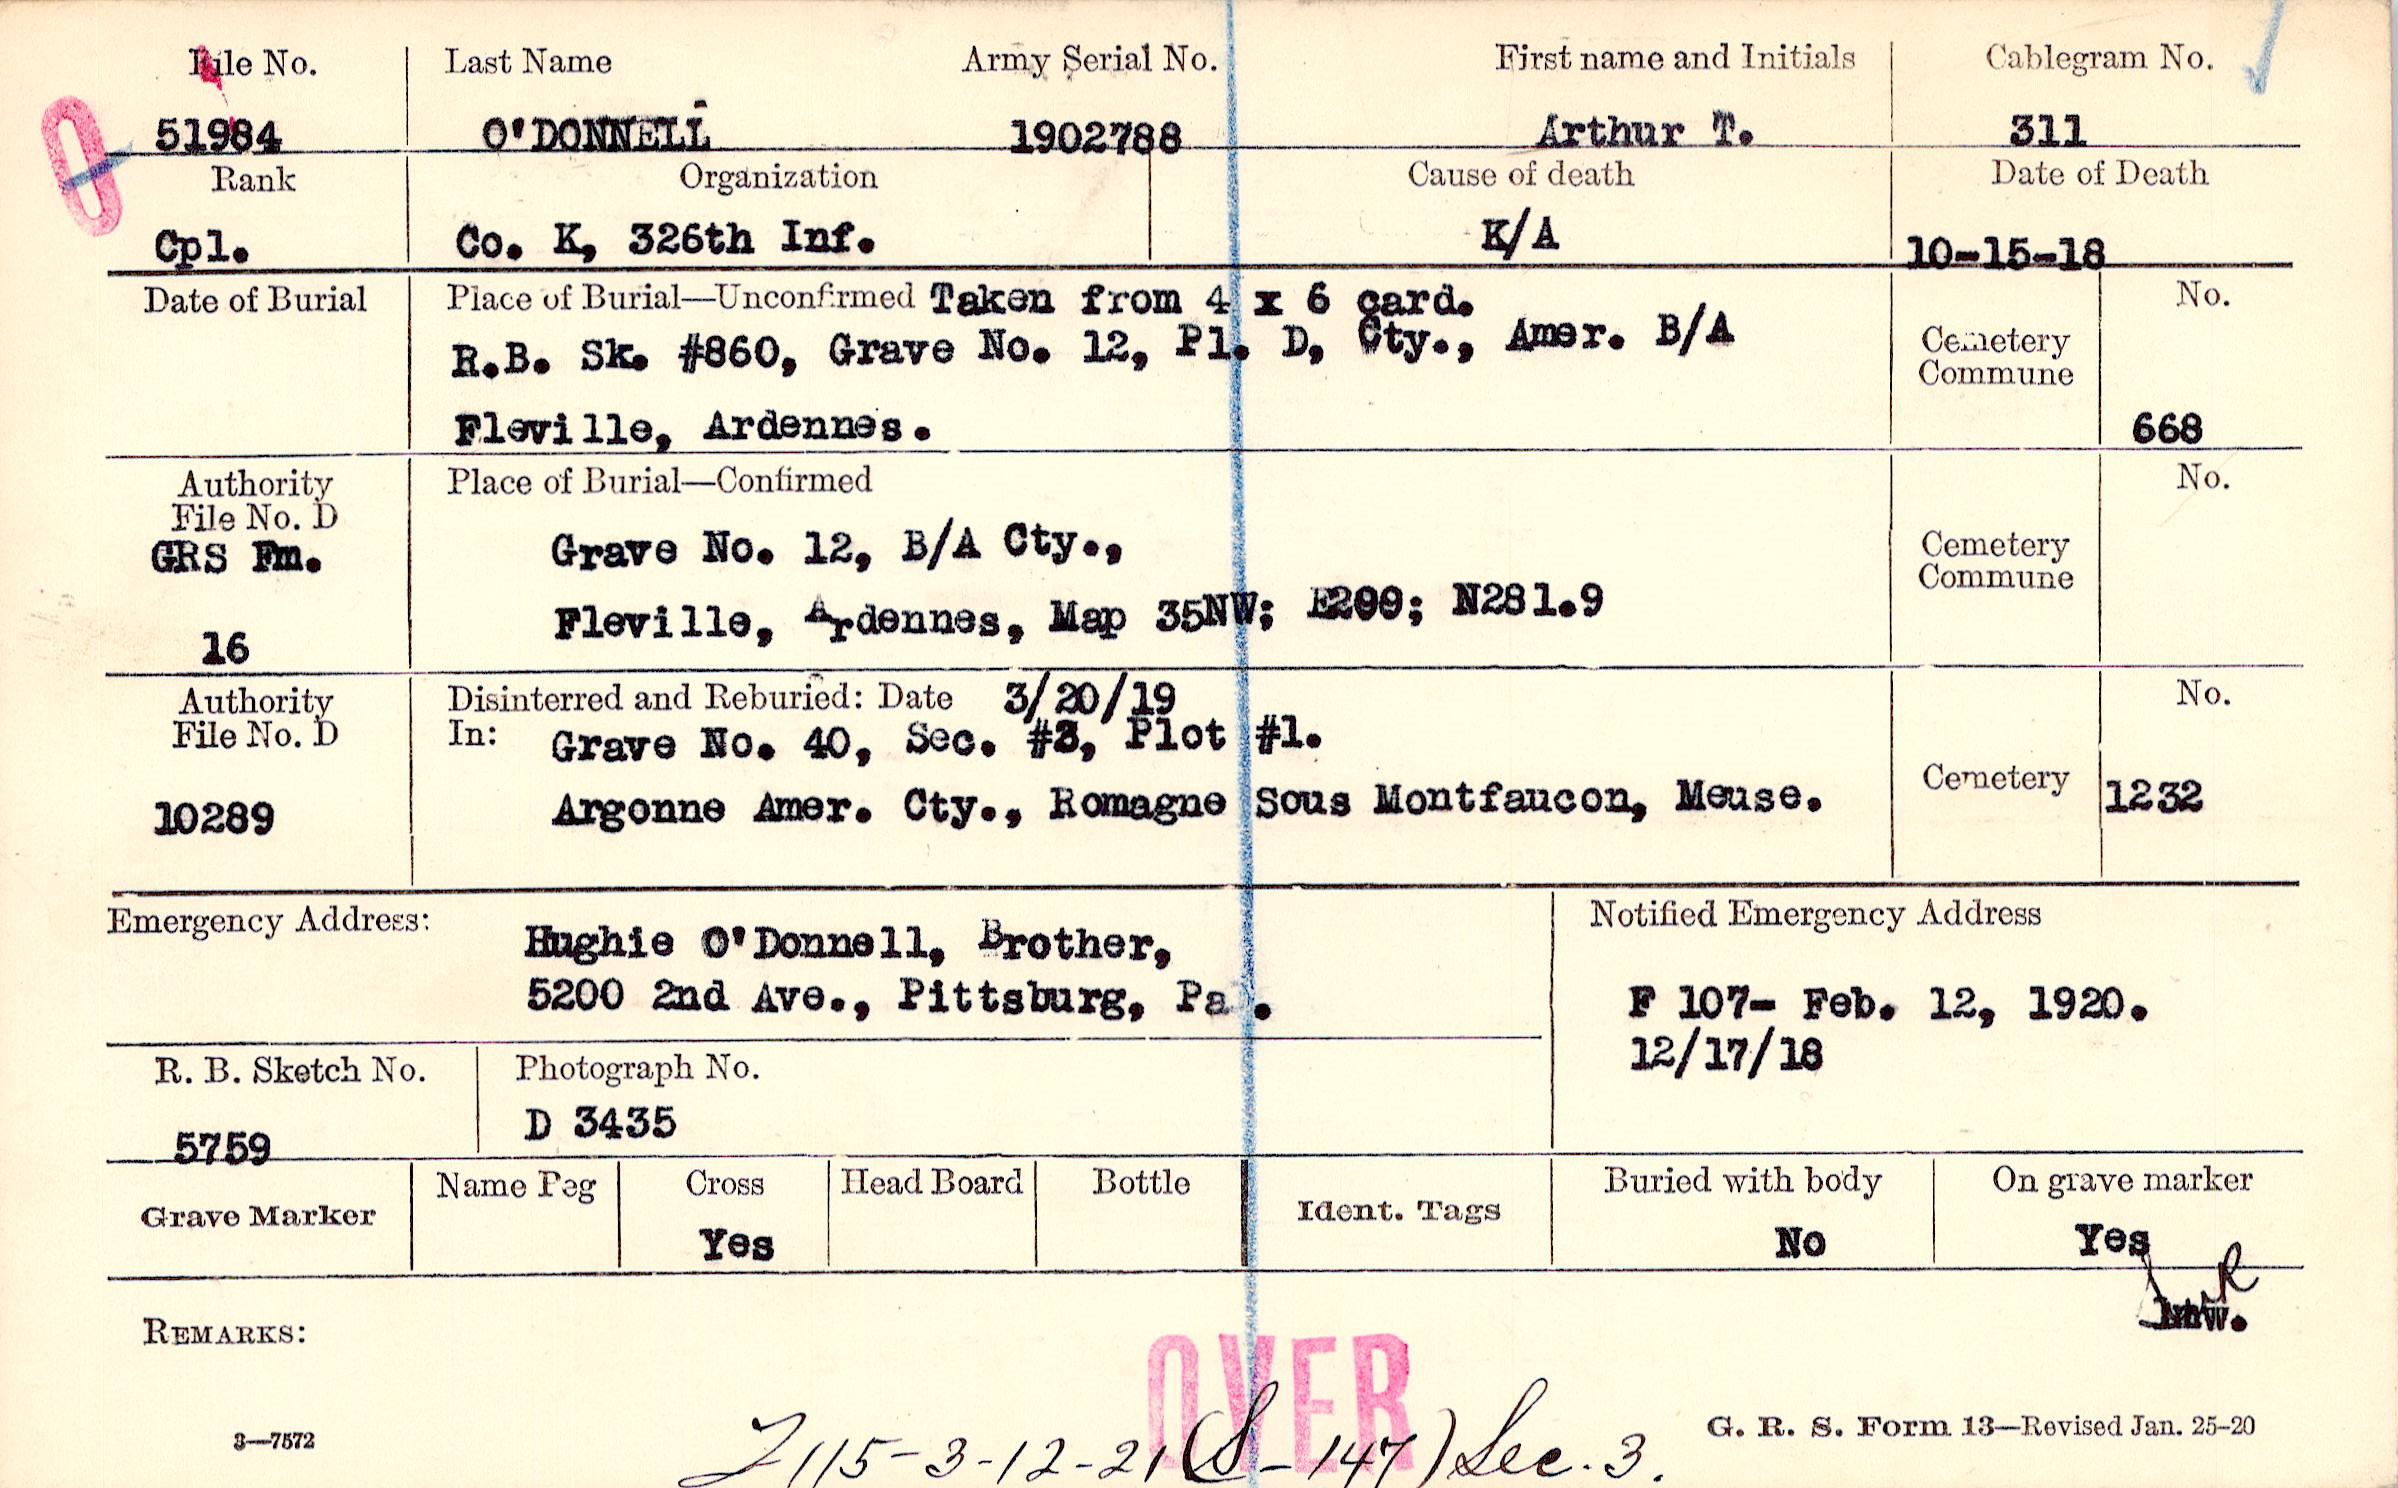 File No. Last Name Army Serial No. First name and Initials Cablegram No.
O 51984 O'DONNELL 1902788 Arthur T. 311
Rank Organization Cause of death Date of Death
Cpl. Co. K, 326th Inf. K/A 10-15-18
Date of Burial Place of Burial—Unconfirmed Taken from 4 x 6 card. No.
R.B. Sk. #860, Grave No. 12, Pl. D, Cty., Amer. B/A Cemetery
Commune
Fleville, Ardennes. 668
Authority Place of Burial—Confirmed No.
File No. D
GRS Fm. Grave No. 12, B/A Cty., Cemetery
Commune
Fleville, Ardennes, Map 35NW; N281.9
16
Authority Disinterred and Reburied: Date 3/20/19 No.
File No. D In: Grave No. 40, Sec. #3, Plot #1.
10289 Argonne Amer. Cty., Romagne Sous Montfaucon, Meuse. Cemetery 1232
Emergency Address: Notified Emergency Address
Hughie O'Donnell, Brother,
5200 2nd Ave., Pittsburg, Pa. F 107- Feb. 12, 1920.
12/17/18
R. B. Sketch No. Photograph No.
5759 D 3435
Grave Marker Name Peg Cross Head Board Bottle Ident. Tags Buried with body On grave marker
Yes No Yes
R
REMARKS:
OVER
115-3-12-21 (S-147) Sec. 3.
3—7572 G. R. S. Form 13—Revised Jan. 25-20